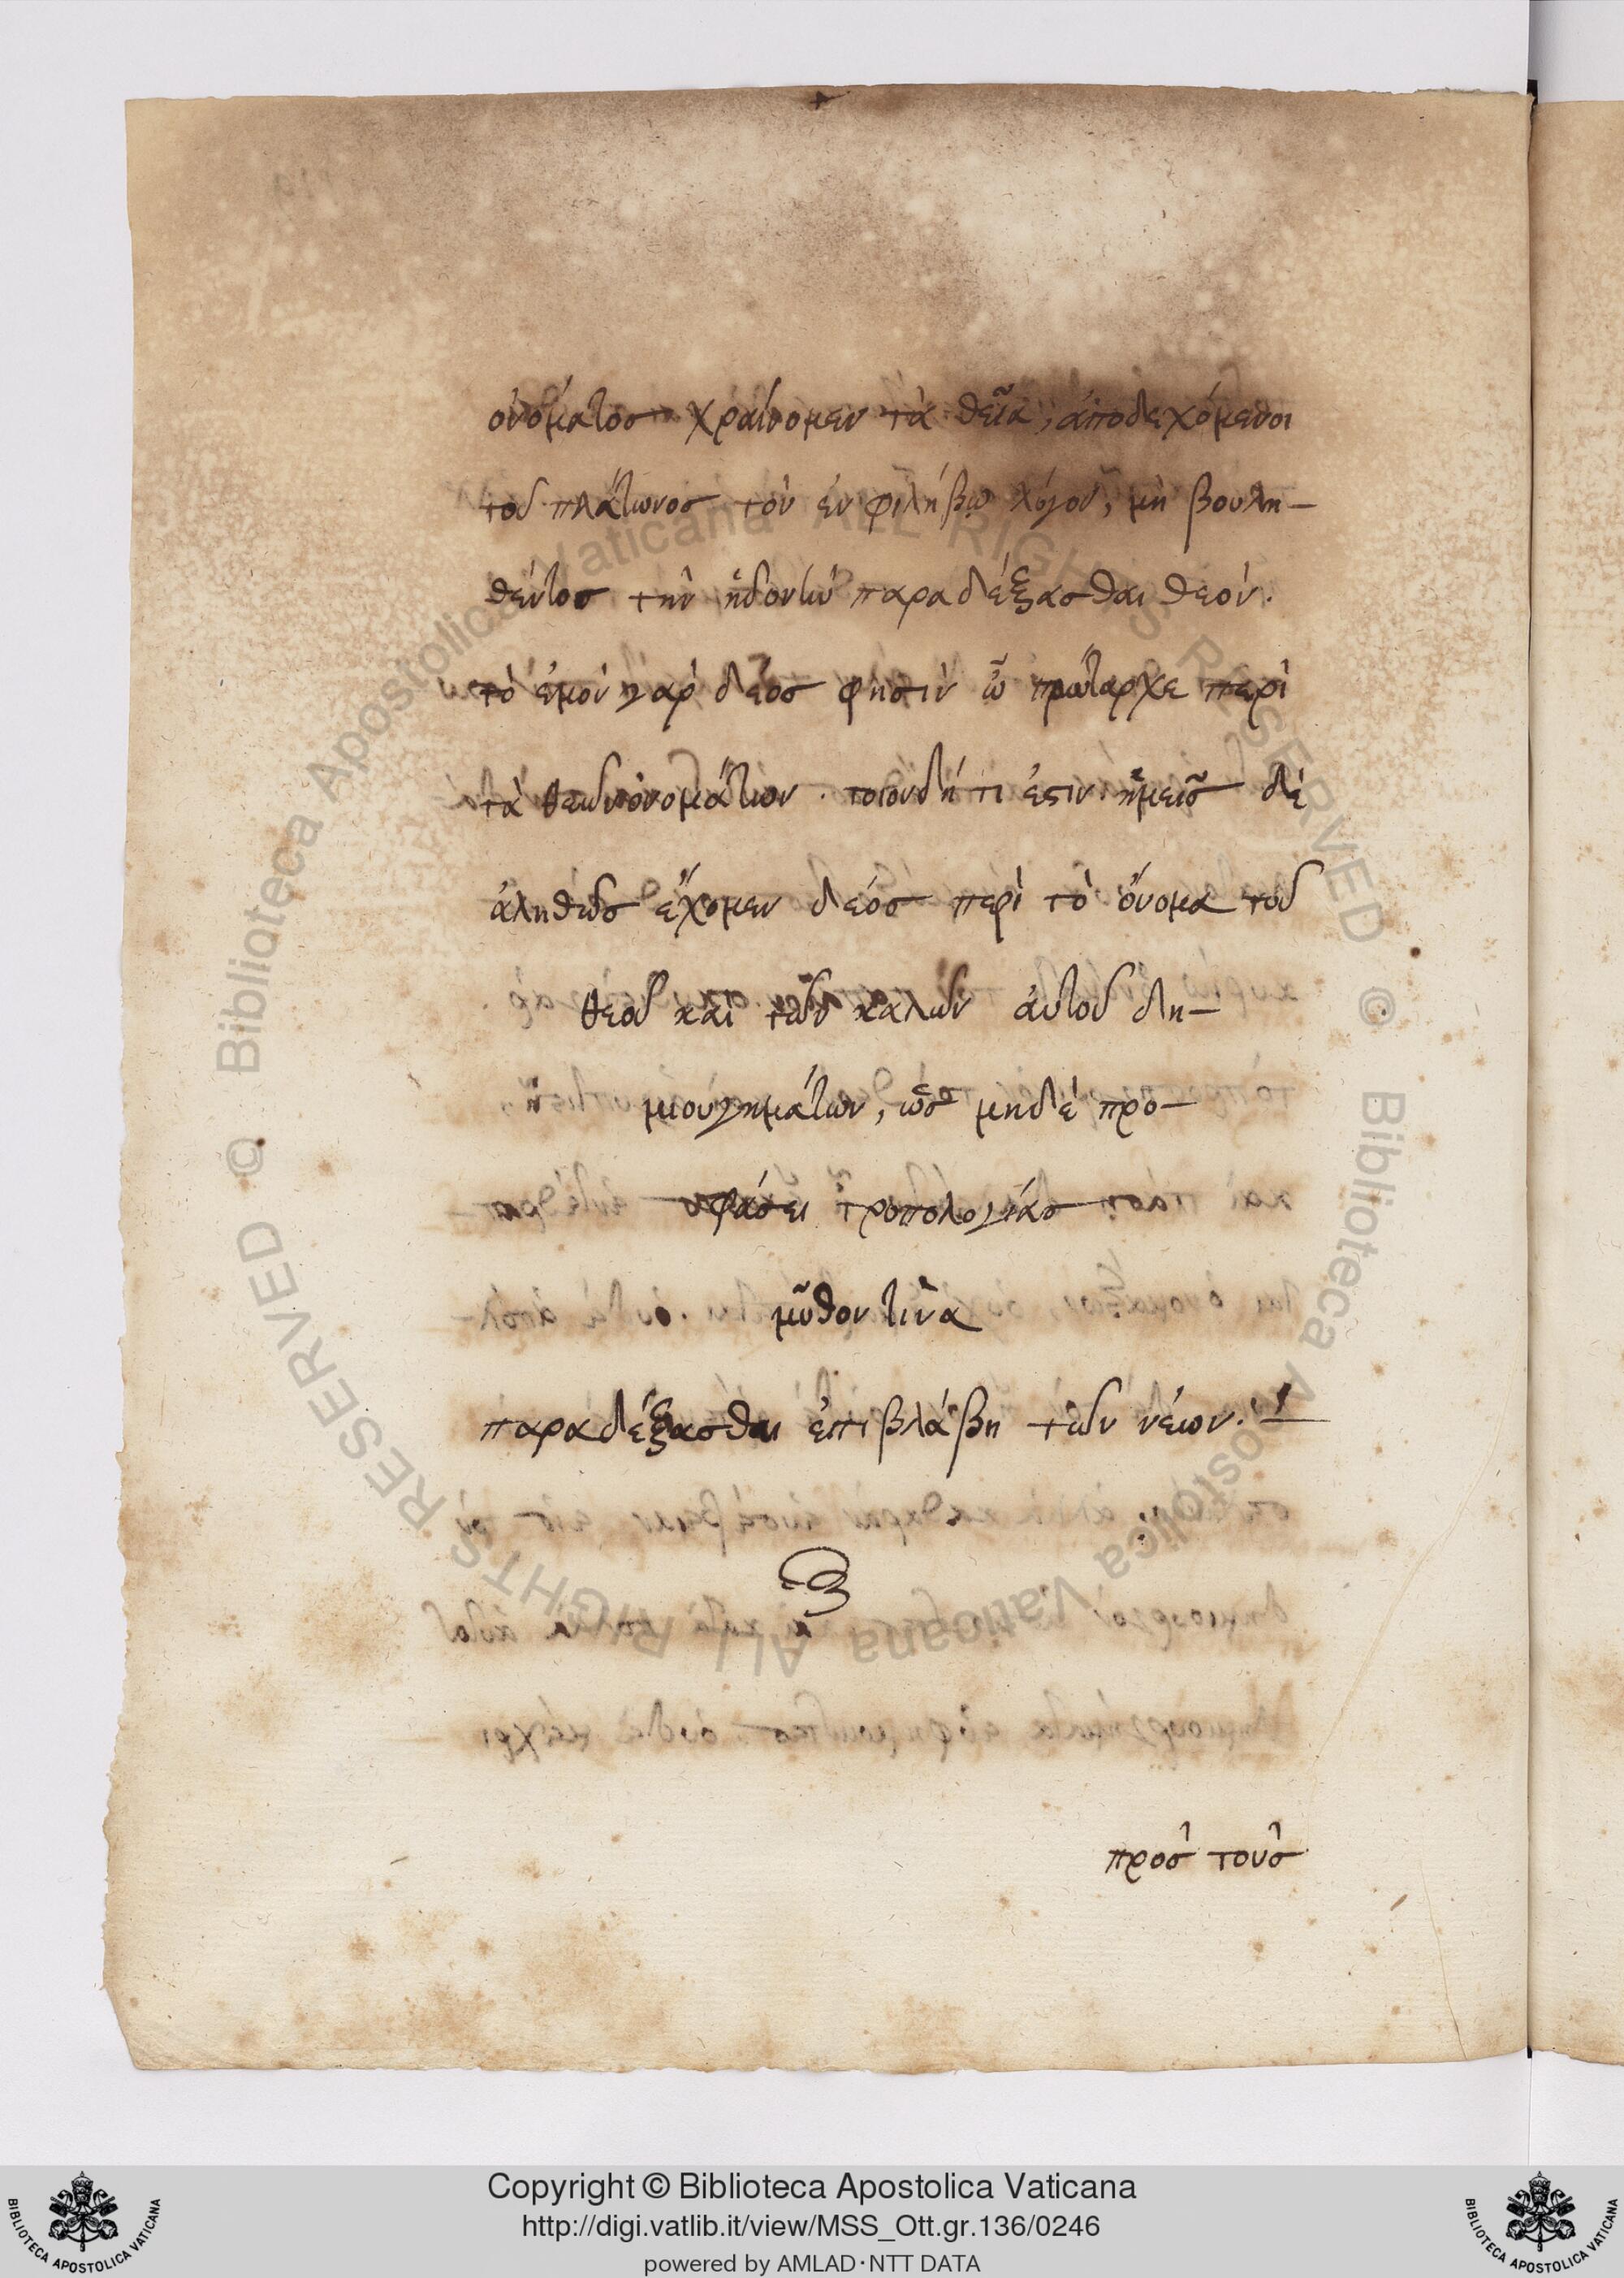 ὀνόματος χραίνομεν τὰ θεῖα, ἀποδεχόμενοι
τοῦ πλάτωνος τὸν ἐν φιλήβῳ λόγον, μὴ βουλη–
θέντος τὴν ἡδονὴν παραδέξασθαι θεόν.
τὸ ἐμὸν γὰρ δέος φησὶν ὦ πρώταρχε περὶ
τὰ θεῶν ὀνομάτων. τοιονδή τι ἐστιν. ἡμεῖς δὲ
ἀληθῶς ἔχομεν δέος περὶ τὸ ὄνομα τοῦ
θεοῦ καὶ τῶν καλῶν ἀυτοῦ δη–
μιουργημάτων, ὡς μηδὲ προ–
φάσει τροπολογίας
μῦθον τινὰ
παραδέξασθαι ἐπι βλάβη τῶν νέων.
πρὸς τοὺς
Biblioteca Apostolica Vaticana ALL RIGHTS RESERVED ©
Biblioteca Apostolica Vaticana ALL RIGHTS RESERVED ©
Copyright © Biblioteca Apostolica Vaticana
http://digi.vatlib.it/view/MSS_Ott.gr.136/0246
powered by AMLAD·NTT DATA
BIBLIOTECA APOSTOLICA VATICANA
BIBLIOTECA APOSTOLICA VATICANA